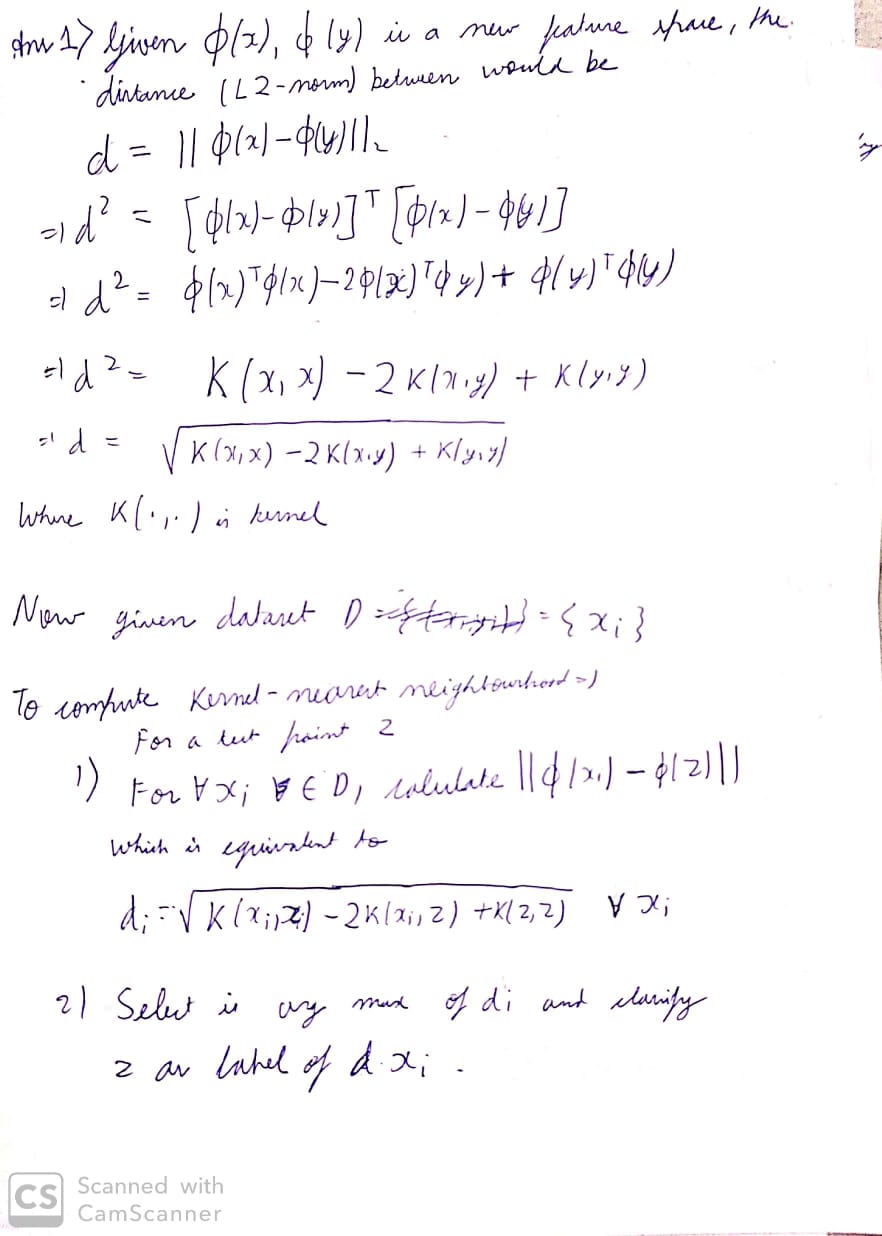 Ans 1) Given ϕ(x), ϕ(y) is a new feature space, the
distance (L2-norm) between would be
d = || ϕ(x)-ϕ(y)||₂
=> d² = [ϕ(x)-ϕ(y)]ᵀ [ϕ(x)-ϕ(y)]
=> d² = ϕ(x)ᵀϕ(x)-2ϕ(x)ᵀϕ y) + ϕ(y)ᵀϕ(y)
=> d² = K(x, x) - 2K(x,y) + K(y,y)
=> d = √(K(x,x) -2K(x,y) + K(y,y))
Where K(·,·) is kernel
Now given dataset D = {xᵢ}
To compute Kernel-nearest neighbourhood =>
For a test point z
1) For ∀ xᵢ ∈ D, calculate ||ϕ(xᵢ) - ϕ(z)||
Which is equivalent to
dᵢ = √(K(xᵢ, xᵢ) - 2K(xᵢ, z) + K(z,z)) ∀ xᵢ
2) Select is arg of dᵢ and classify
z as label of xᵢ.
CS Scanned with
CamScanner